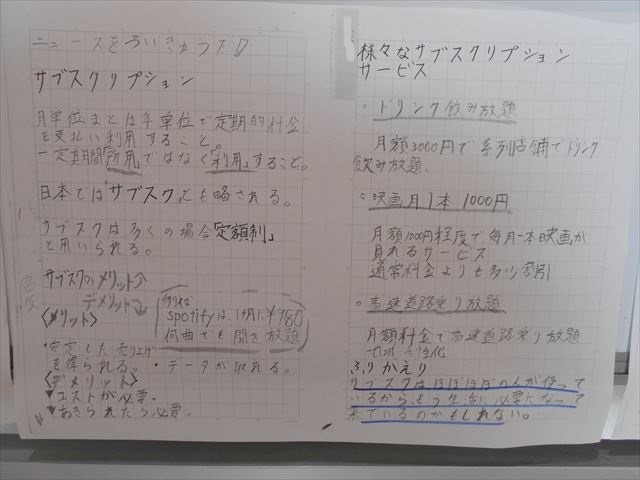 ニュースを
サブスクリプション
月単位または年単位で定期的料金
を支払い利用すること。
一定期間「所用」ではなく「利用」すること。
日本では「サブスク」とも略される。
サブスクは多くの場合「定額制」
と用いられる。
サブスクのメリット
デメリット
〈メリット〉
例えば
spotifyは、1ヶ月に¥980
何曲でも聞き放題
・安定した売り上げ
を得られる。・データが取れる。
〈デメリット〉
▼コストが必要。
▼あきられたら必要。
様々なサブスクリプション
サービス
○ドリンク飲み放題
月額3000円で系列店舗でドリンク
飲み放題、
○映画月1本1000円
月額1000円程度で毎月一本映画が
見れるサービス
通常料金よりも多少割引
○高速道路乗り放題
月額料金で高速道路乗り放題
地域
ふりかえり
サブスクはほぼほぼの人が使って
いるから、もう生活に必要になって
来ているのかもしれない。